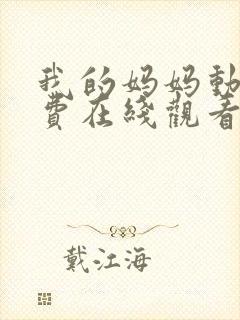 我的妈妈動
費在綫觀看
戴江海